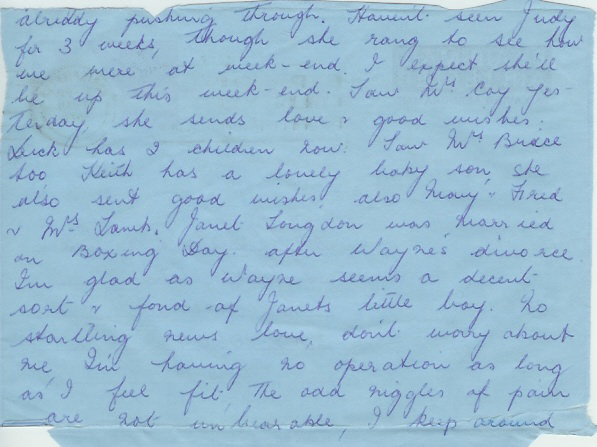 already pushing through. Haven't seen Judy
for 3 weeks, though she rang to see how
we were at week-end. I expect she'll
be up this week-end. Saw Mrs Coy yes-
terday, she sends love & good wishes.
has 2 children now. Saw Mrs Bruce
too Keith has a lovely baby son, she
also sent good wishes, also Mary & Fred
& Mrs Lamb. Janet Longdon was married
on Boxing Day. after Wayne's divorce.
I'm glad as Wayne seems a decent
sort & fond of Janets little boy. No
startling news love, don't worry about
me I'm having no operation as long
as I feel fit. The odd niggles of pain
are not unbearable, I keep around